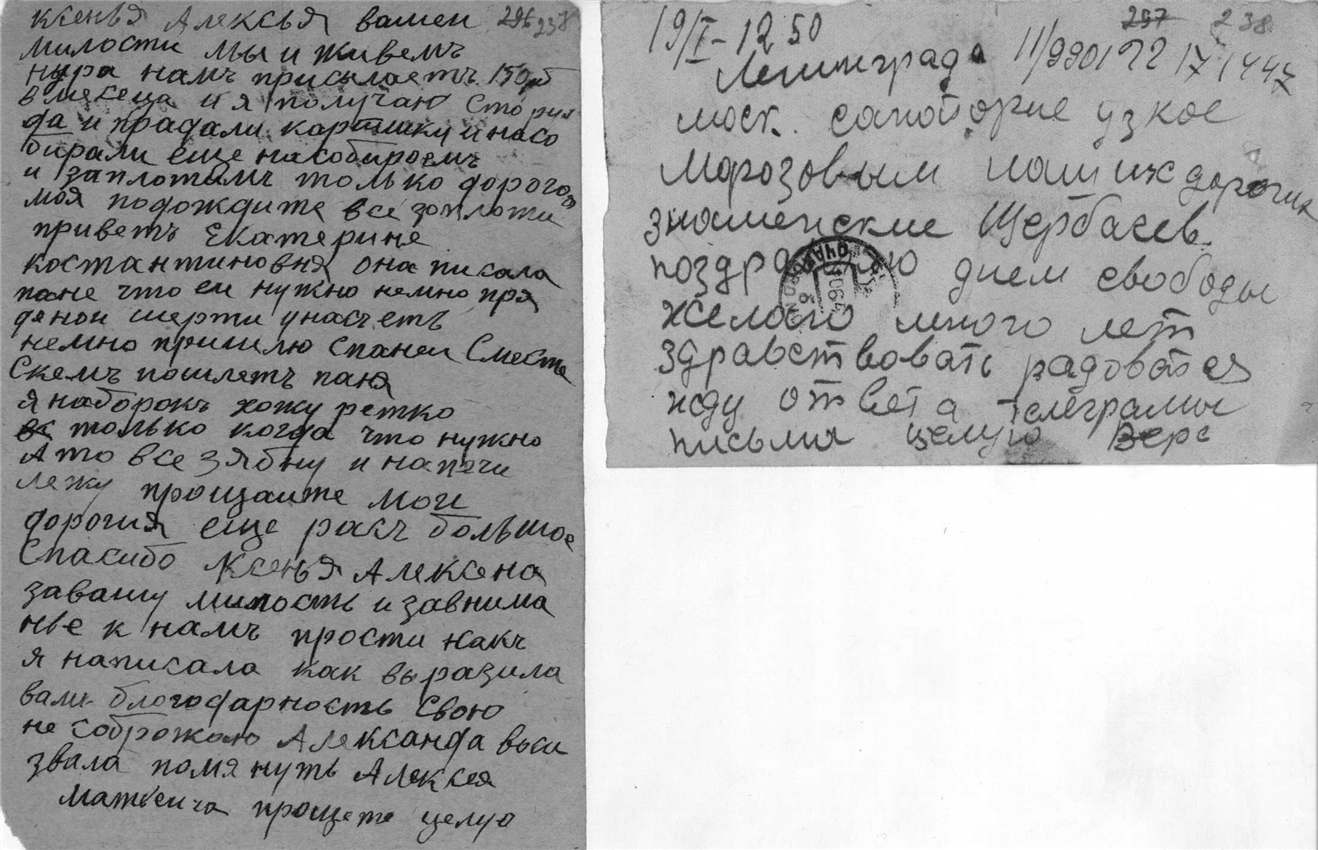 ксенья Алексья вашеи 296 238
милости мы и живемъ
нура намъ присылаетъ 150 рб
в месеца и я получаю сто руп
да и продали картинки и насо
бирали еще насобироемъ
и заплотимъ только дорогоя
моя подождите все зоплоти
приветъ Екатерине
костантиновня она писала
пане что еи нужно немно пря
деной шерти унасъетъ
немно пришлю спанеи Сместе
Скемъ пошлетъ паня
я наборокъ хожу ретко
только когда что нужно
Ато все зябну и напечи
лежу прощаите мои
дорогия еще ракъ большое
Спасибо Ксенья Алексена
завашу милость и завнима
нье к намъ прости какъ
я написала как выразила
вам благодарность свою
не соброжаю Александа выи
звала помянуть Алексея
матвеича прощете целую
19/I-1250 297 238
Ленинграда 11/9901 22 17 1447
моск. санаторие узкое
морозовым нашим дорогим
знаменские Щербасев
поздравляю днем свободы
желаю много лет
здравствовать радоватся
жду ответа телеграмы
письма целую Вера